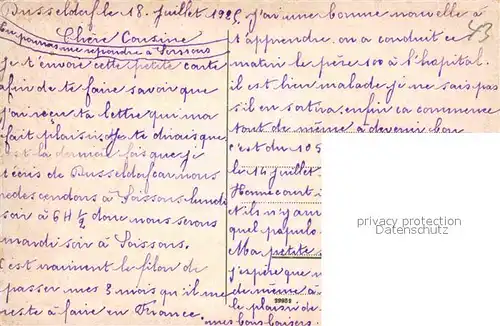 Dusseldorf le 18 Juillet 1925.
Chère Cousine
Tu pourras me répondre à Soissons
Je t'envoie cette petite carte
afin de te faire savoir que
j'ai reçu ta lettre qui m'a
fait plaisir. Je te dirais que
c'est la dernière fois que je
t'écris de Dusseldorf car nous
redescendons à Soissons lundi
soir à 6H ½ donc nous serons
mardi soir à Soissons.
C'est vraiment le filon de
passer mes 3 mois qu'il me
reste à faire en France.
J'ai une bonne nouvelle à
t'apprendre, on a conduit ce
matin le père 100 à l'hôpital.
il est bien malade je ne sais pas
s'il en sortira, enfin ça commence
tout de même à devenir bon
c'est du 105
le 14 juillet
Hennecourt
et ils n'y a
quel
Ma petite
j'espère que
de même à
le plaisir de
mes bons baisers.
73
20951
proposed by
Dartexclusives.com